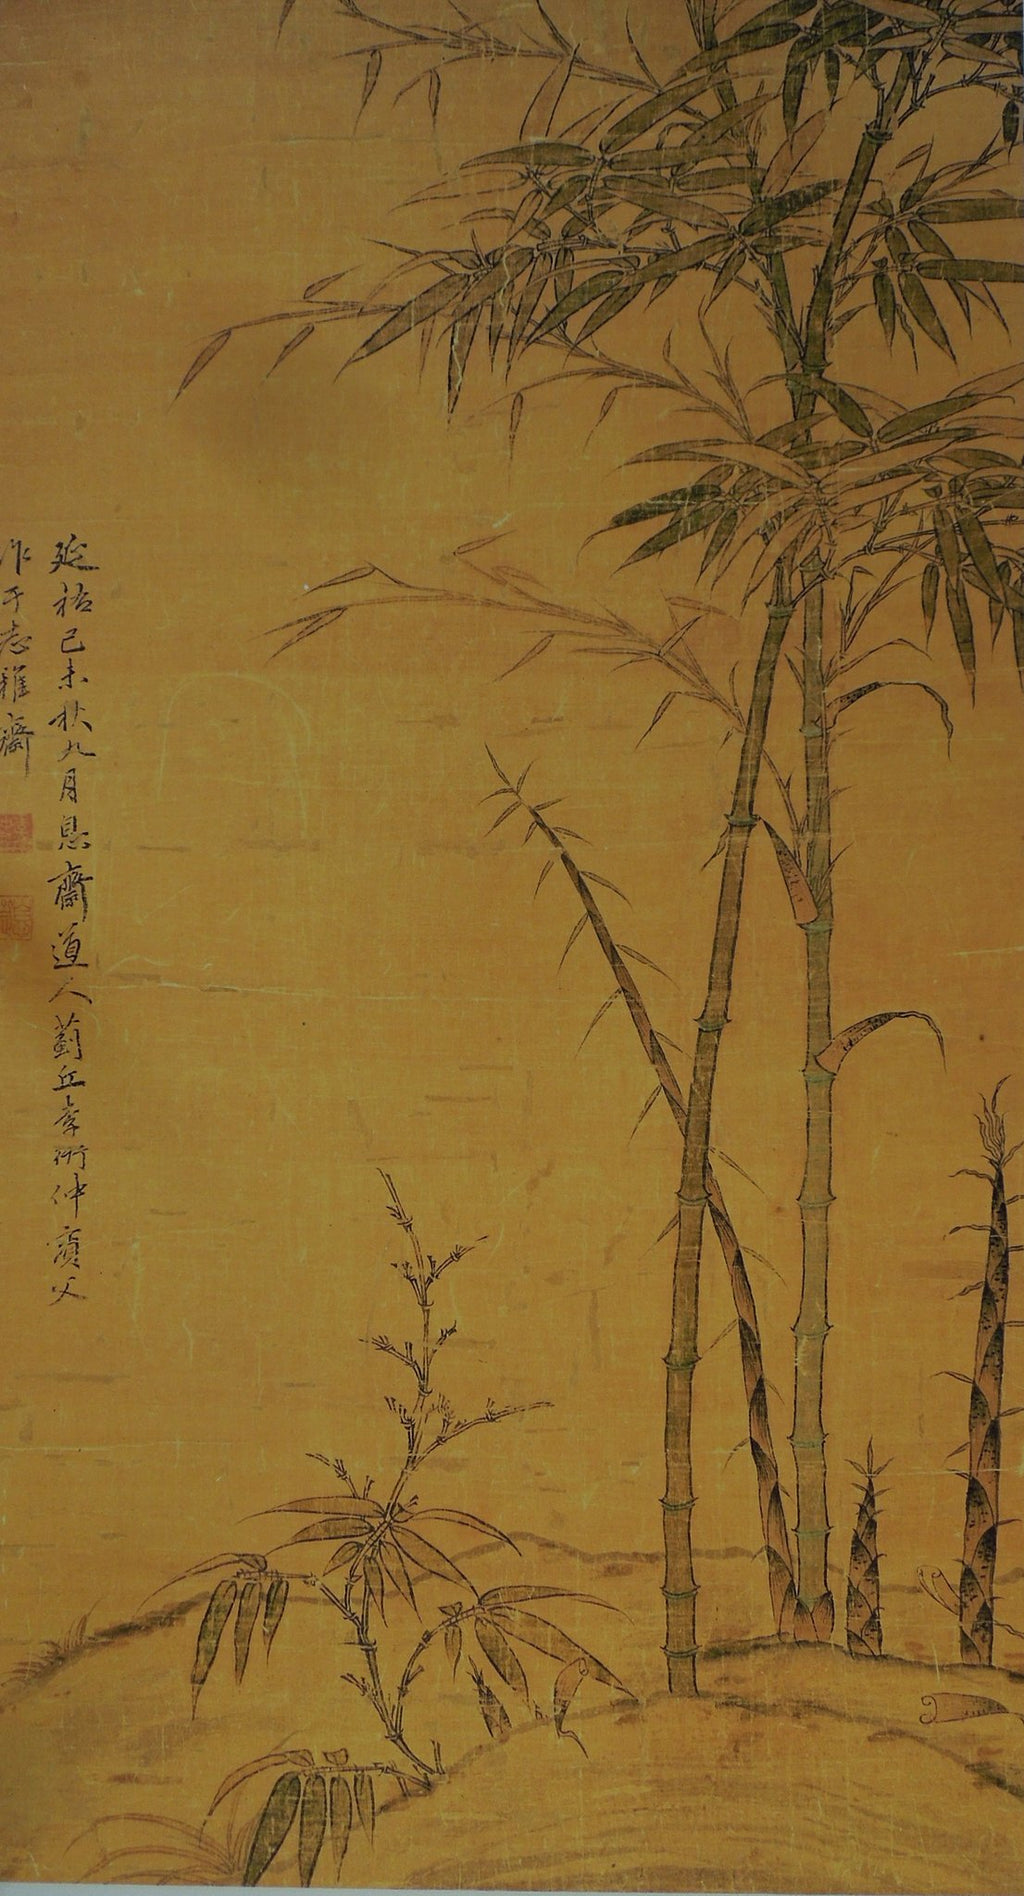 延祐己未秋九月息齋道人薊丘李衎仲賓父
作于志雅齋